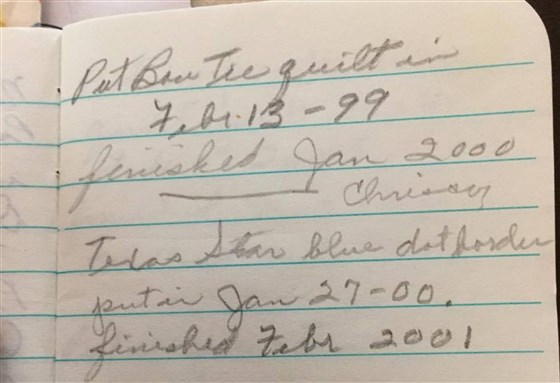 Put Bow Tie quilt in
Febr. 13-99
finished Jan 2000
Chrissy
Texas Star blue dot border
put in Jan 27-00.
finished Febr 2001